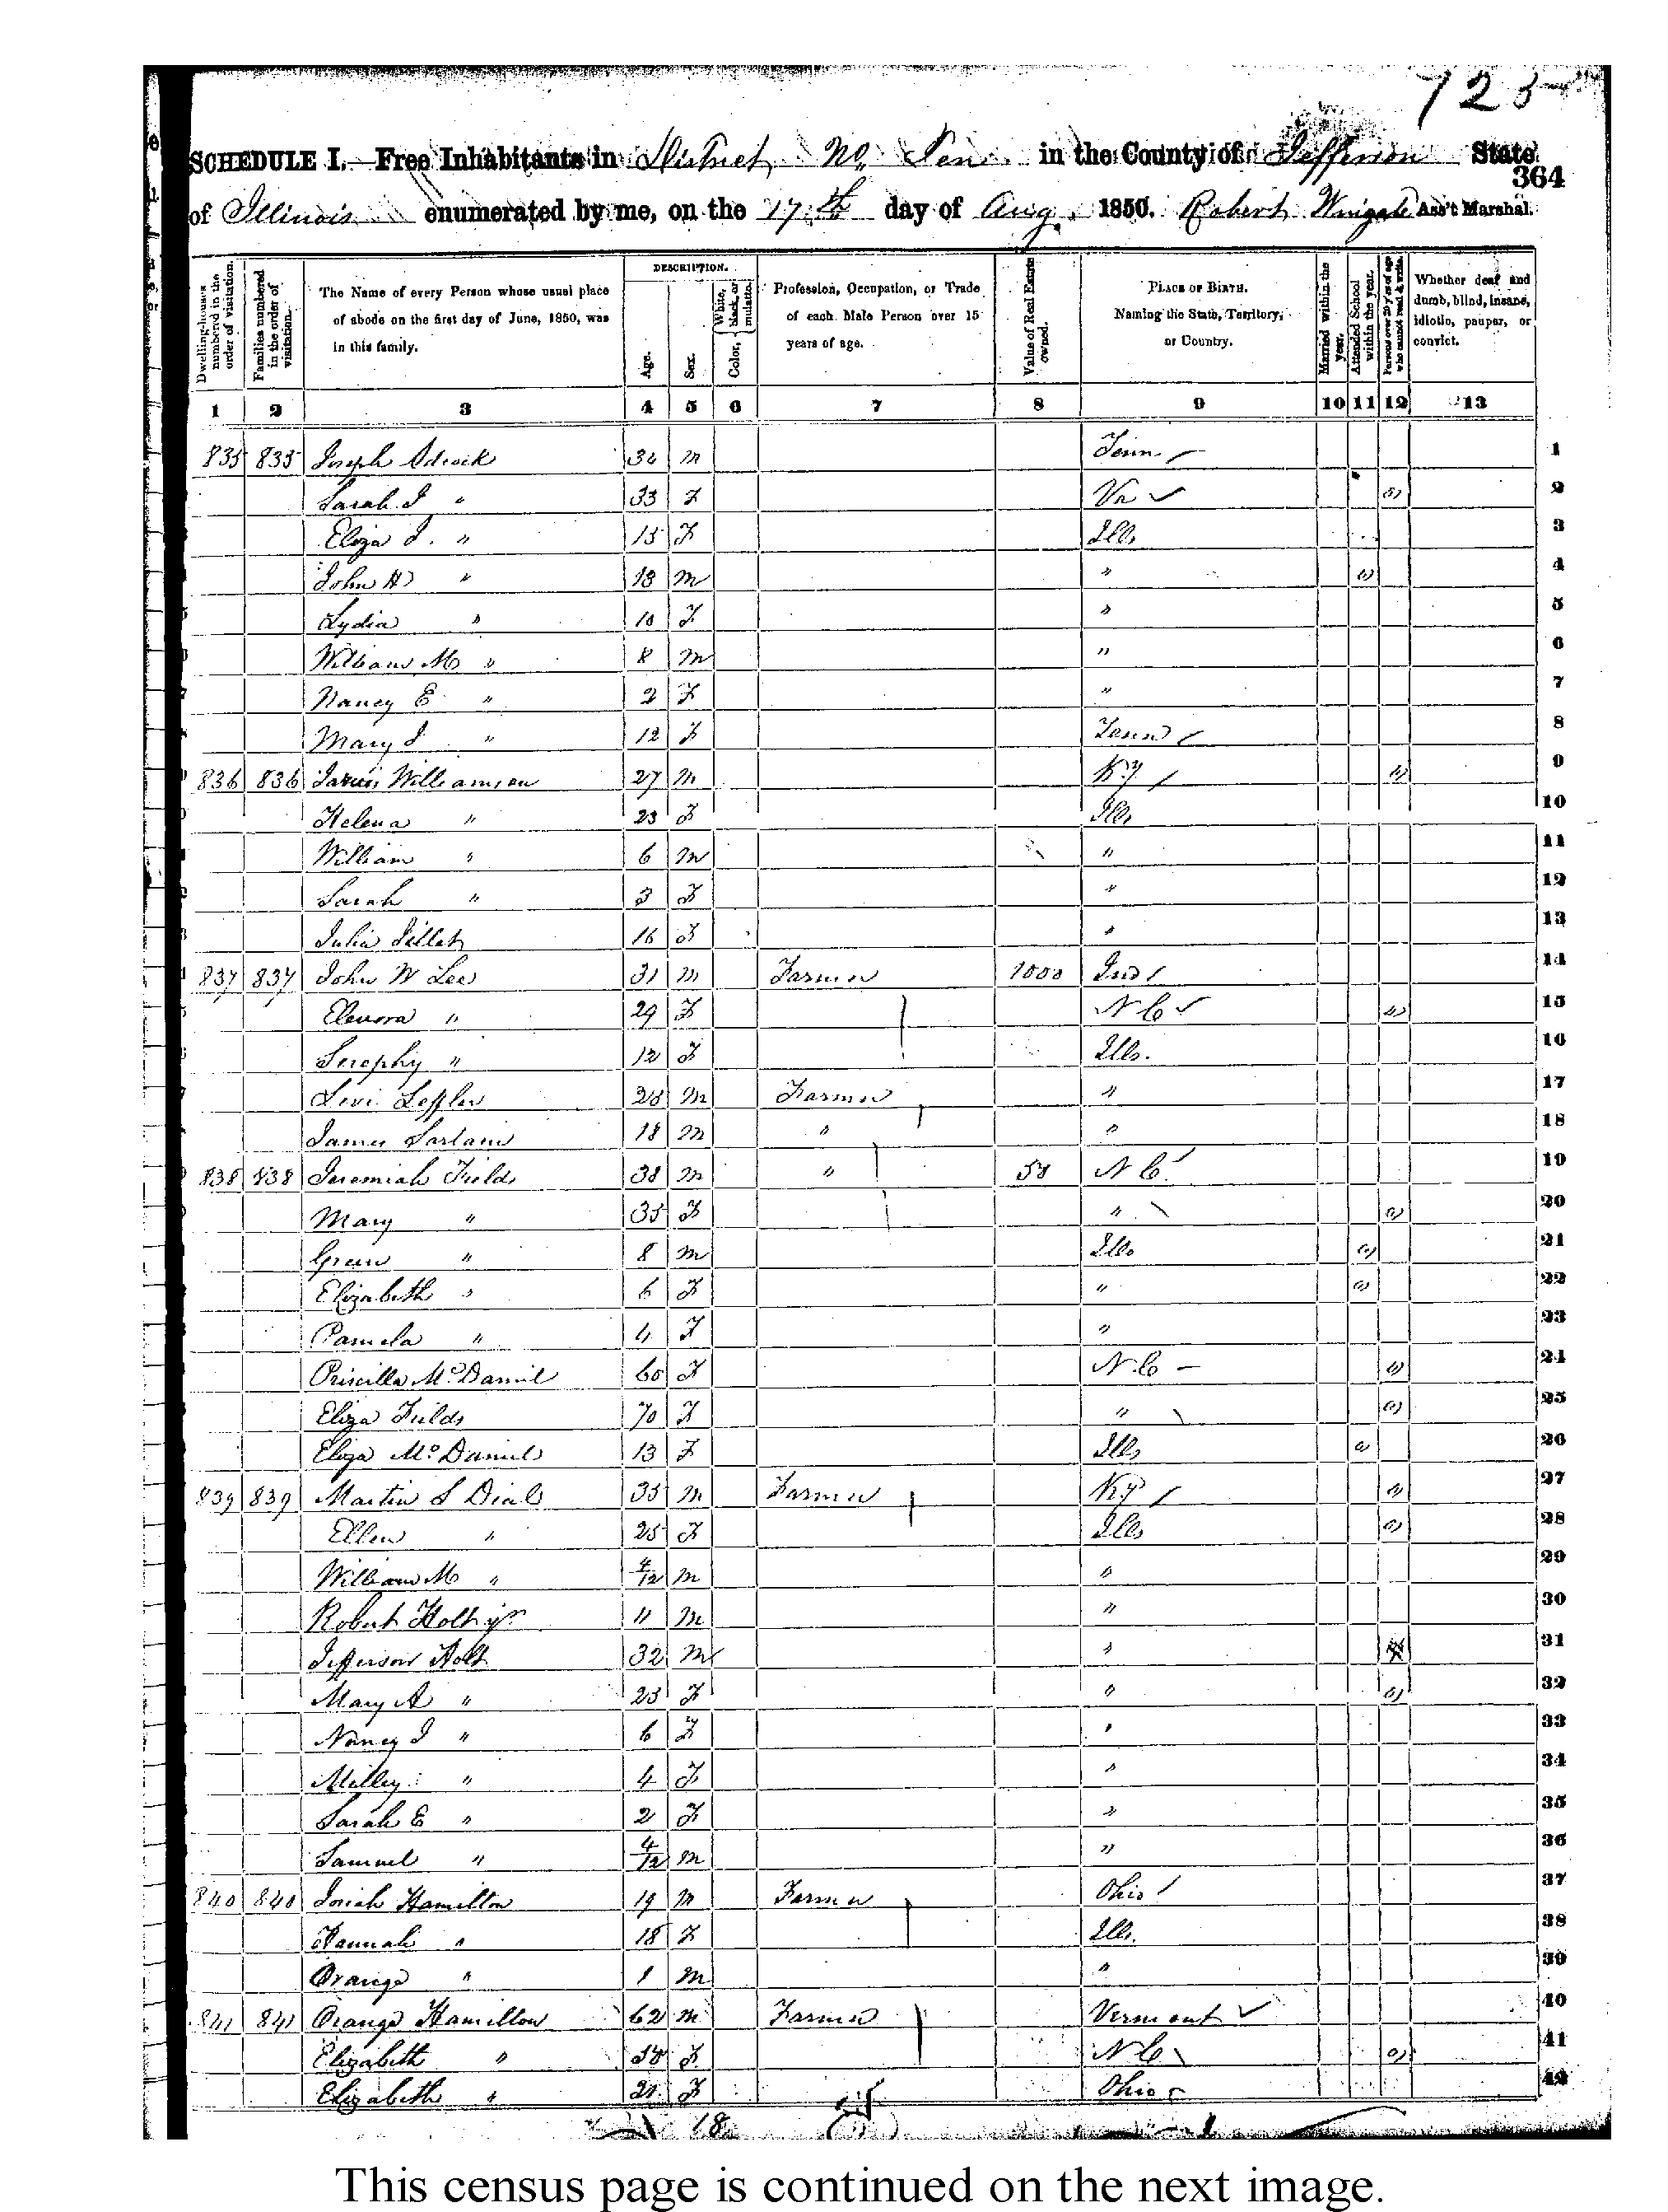 725
SCHEDULE I. Free Inhabitants in District No. Ten in the County of Jefferson State
364
of Illinois enumerated by me, on the 17th day of Aug. 1850. Robert Wingate Ass't Marshal.
Dwelling-houses numbered in the order of visitation. Families numbered in the order of visitation. The Name of every Person whose usual place of abode on the first day of June, 1850, was in this family. DESCRIPTION. Age. Sex. Color, { White, black, or mulatto. Profession, Occupation, or Trade of each Male Person over 15 years of age. Value of Real Estate owned. PLACE OF BIRTH. Naming the State, Territory, or Country. Married within the year. Attended School within the year. Persons over 20 y'rs of age who cannot read & write. Whether deaf and dumb, blind, insane, idiotic, pauper, or convict.
1 2 3 4 5 6 7 8 9 10 11 12 13
835 835 Joseph Adcock 34 M Tenn. 1
Sarah J " 33 F Va 2
Eliza J. " 15 F Ills 3
John H " 13 M " 4
Lydia " 10 F " 5
William M " 8 M " 6
Nancy E " 2 F " 7
Mary J " 12 F Tenn 8
836 836 Williamson 27 M Ky 9
Helena " 23 F Ills 10
William " 6 M " 11
Sarah " 3 F " 12
Julia 16 F " 13
837 837 John W Lee 31 M Farmer 1000 Ind 14
Elenora " 29 F N C 15
Serephy " 12 F Ills. 16
Levi Leffler 28 M Farmer " 17
James 18 M " " 18
838 838 Jeremiah Fields 38 M " 50 N C 19
Mary " 35 F " 20
Green " 8 M Ills 21
Elizabeth " 6 F " 22
Pamela " 4 F " 23
Priscilla McDaniel 60 F N. C 24
Eliza Fields 70 F " 25
Eliza McDaniel 13 F Ills 26
839 839 Martin S Dial 35 M Farmer Ky 27
Ellen " 25 F Ills 28
William M " 4/12 M " 29
Robert Holt jr 11 M " 30
Jefferson Holt 32 M " 31
Mary A " 23 F " 32
Nancy J " 6 F " 33
Milley " 4 F " 34
Sarah E " 2 F " 35
Samuel " 4/12 M " 36
840 840 Josiah Hamilton 19 M Farmer Ohio 37
Hannah " 18 F Ills. 38
Orange " 1 M " 39
841 841 Orange Hamilton 62 M Farmer Vermont 40
Elizabeth " 58 F N C 41
Elizabeth " 21 F Ohio 42
18
This census page is continued on the next image.